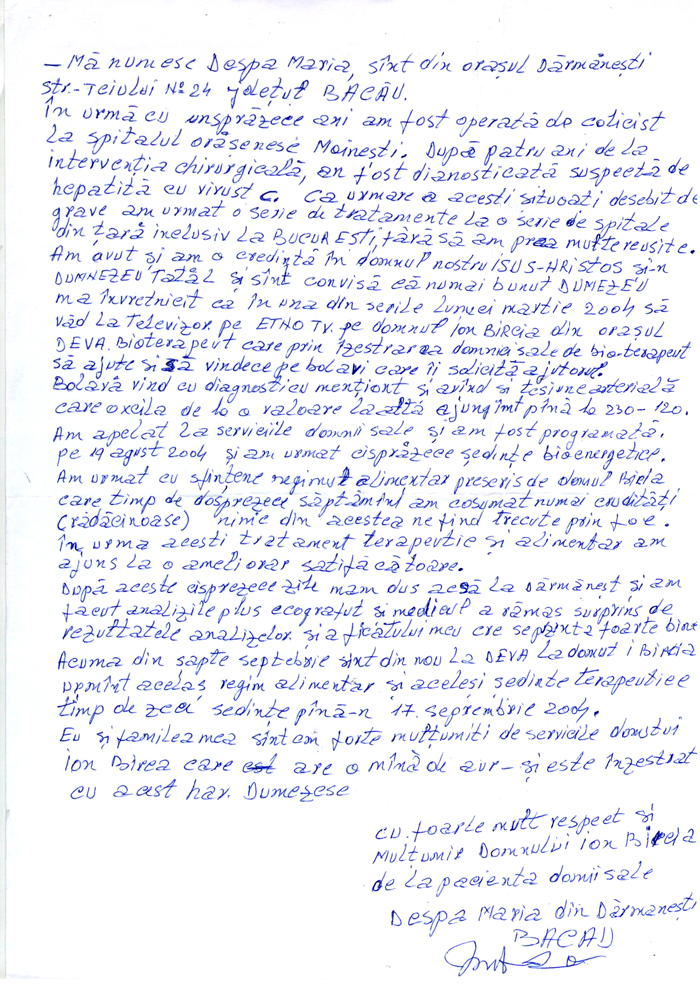 — Mă numesc Despa Maria, sînt din orașul Dărmănești
str.-Teiului No 24 județul BACĂU.
În urmă cu unsprăzece ani am fost operată de colicist
La spitalul orășenesc Moinești. După patru ani de la
intervenția chirurgicală, an fost dianosticată suspectă de
hepatită cu virust C. Ca urmare a acesti situoați desebit de
grave am urmat o serie de tratamente la o serie de spitale
din țară inclusiv La BUCUREȘTI, fără să am prea multe reușite.
Am avut și am o credință în domnul nostru ISUS-HRISTOS și-n
DUMNEZEU TATĂL și sînt convisă că numai bunul DUMEZEU
ma învretnicit ca în una din serile lunei martie 2004 să
văd La Televizor pe ETNO TV. pe domnul ion Bircia din orașul
DEVA. Bioterapeut care prin îzestrarea domniei sale de bio-terapeut
să ajute și să vindece pe bolavi care îi solicită ajutorul.
Bolavă vind cu diagnosticu menționt și avind și tesiune arterială
care oxcila de la o valoare la altă ajungînt pînă la 230-120.
Am apelat La serviciile domnii sale și am fost programată.
pe 19 agust 2004 și am urmat cisprăzece ședințe bioenergetice.
Am urmat cu sfințene regimul alimentar prescris de domul Bircia
care timp de dosprezece săptămîni am cosumat numai crudități
(rădăcinoase) nimic din acestea ne find trecute prin foc.
în urma acesti tratament terapeutic și alimentar am
ajuns la o ameliorar satifăcătoare.
După aceste cisprezece zile mam dus acasă La Dărmănest și am
facut analizile plus ecograful și medicul a rămas surprins de
rezultatele analizelor și a ficatului meu cre seprzinta foarte bine
Acuma din sapte septebrie sint din nou La DEVA La domul i Bircia
urmînt acelaș regim alimentar și acelesi sedinte terapeutice
timp de zeci sedinte pînă-n 17. seprembrie 2004.
Eu și familea mea sîntem forte mulțumiti de servicile domului
ion Bircea care est are o mînă de aur-și este înzestrat
cu acast har. Dumezese
cu foarte mult respect și
Mulțumir Domnului ion Bircia
de la pacienta domiisale
Despa Maria din Dărmanești
BACAU